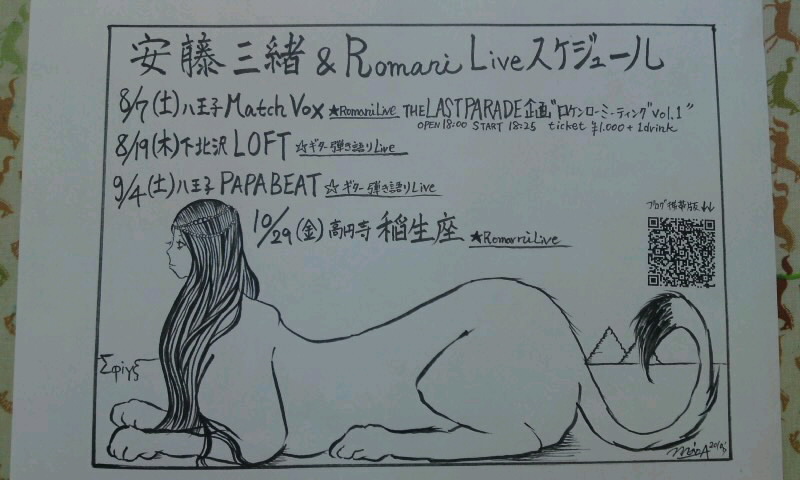 安藤三緒 & Romani Live スケジュール
8/7(土)八王子 Match Vox ★Romani Live THE LAST PARADE企画"ロケンローミーティングvol.1"
OPEN 18:00 START 18:25 ticket ¥1.000+1drink
8/19(木)下北沢 LOFT ☆ギター弾き語りLive
9/4(土)八王子 PAPABEAT ☆ギター弾き語りLive
10/29(金)高円寺 稲生座 ★Romani Live
ブログ携帯版↓↓
Σφίγξ